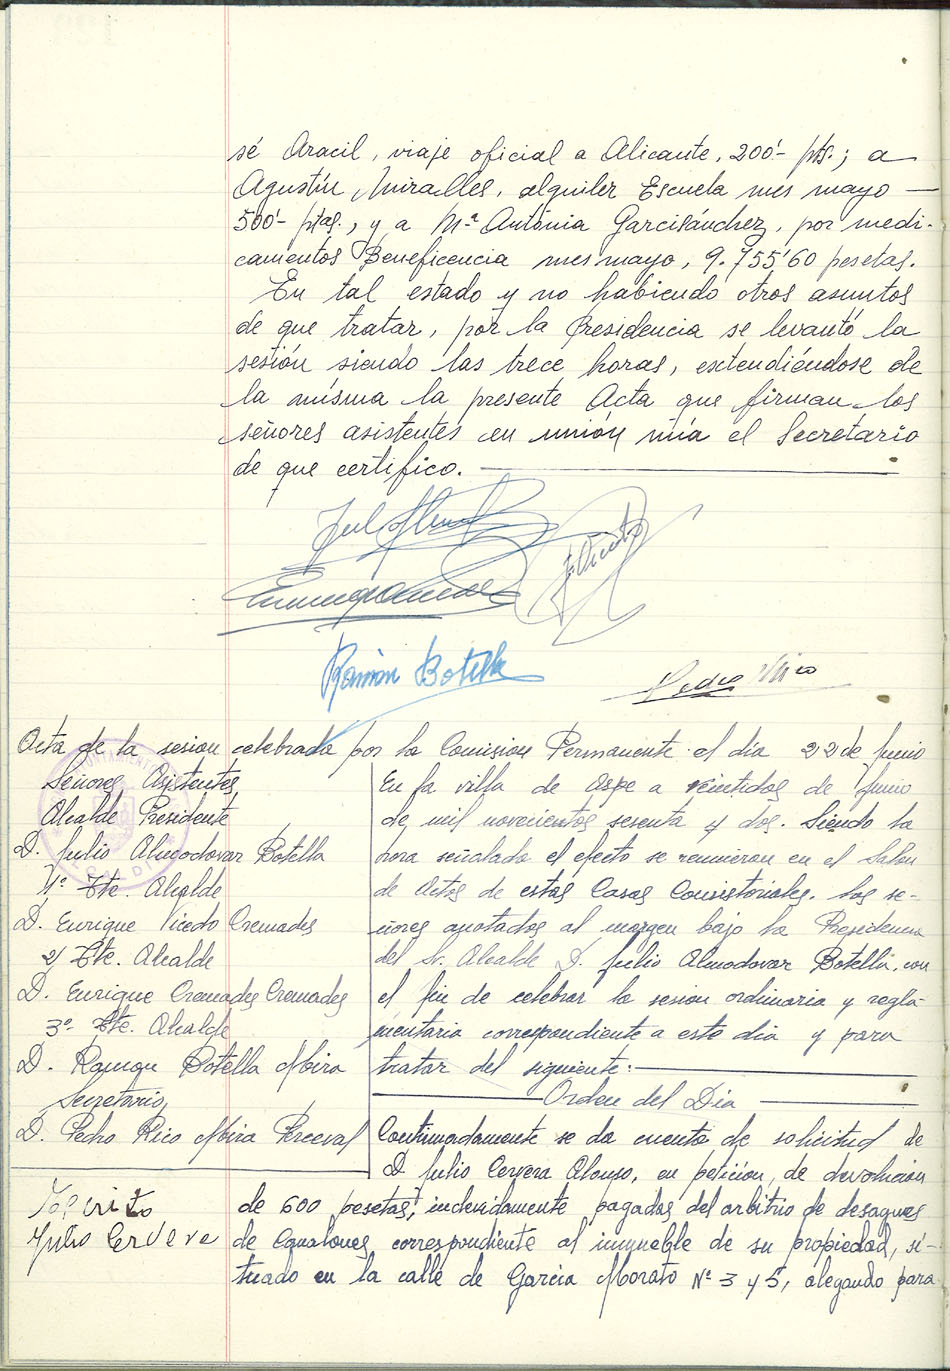 sé Aracil, viaje oficial a Alicante, 200'- pts.; a
Agustín Miralles, alquiler Escuela mes mayo —
500'- ptas., y a Mª Antónia Garcisánchez, por medi-
camentos Beneficencia mes mayo, 9.755'60 pesetas.
En tal estado y no habiendo otros asuntos
de que tratar, por la Presidencia se levantó la
sesión siendo las trece horas, extendiéndose de
la misma la presente Acta que firman los
señores asistentes en unión mía el Secretario
de que certifico.
Ramón Botella
Pedro Rico
Acta de la sesion celebrada por la Comision Permanente el dia 22 de Junio
Señores Asistentes,
Alcalde Presidente
D. Julio Almodovar Botella
1º Tte. Alcalde
D. Enrique Vicedo Cremades
2º Tte. Alcalde
D. Enrique Cremades Cremades
3º Tte. Alcalde
D. Ramon Botella Mira
Secretario,
D. Pedro Rico Mira Perceval
En la villa de Aspe a veintidos de Junio
de mil novecientos sesenta y dos. Siendo la
hora señalada el efecto se reunieron en el Salon
de Actos de estas Casas Consistoriales. los se-
ñores anotados al margen bajo la Presidencia
del Sr. Alcalde D. Julio Almodovar Botella, con
el fin de celebrar la sesion ordinaria y regla-
mentaria correspondiente a este dia y para
tratar del siguiente:
Orden del Dia
Continuadamente se da cuenta de solicitud de
D Julio Cervera Alonso, en peticion, de devolucion
de 600 pesetas, indevidamente pagadas del arbitrio de desagues
de Canalones, correspondiente al inmueble de su propiedad, si-
tuado en la calle de Garcia Morato Nº 3 y 5, alegando para
Julio Cervera